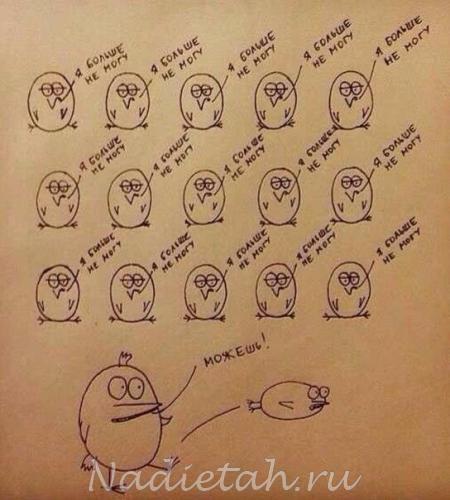 Я БОЛЬШЕ
НЕ МОГУ
Я БОЛЬШЕ
НЕ МОГУ
Я БОЛЬШЕ
НЕ МОГУ
Я БОЛЬШЕ
НЕ МОГУ
Я БОЛЬШЕ
НЕ МОГУ
Я БОЛЬШЕ
НЕ МОГУ
Я БОЛЬШЕ
НЕ МОГУ
Я БОЛЬШЕ
НЕ МОГУ
Я БОЛЬШЕ
НЕ МОГУ
Я БОЛЬШЕ
НЕ МОГУ
Я БОЛЬШЕ
НЕ МОГУ
Я БОЛЬШЕ
НЕ МОГУ
Я БОЛЬШЕ
НЕ МОГУ
Я БОЛЬШЕ
НЕ МОГУ
Я БОЛЬШЕ
НЕ МОГУ
МОЖЕШЬ!
Nadietah.ru